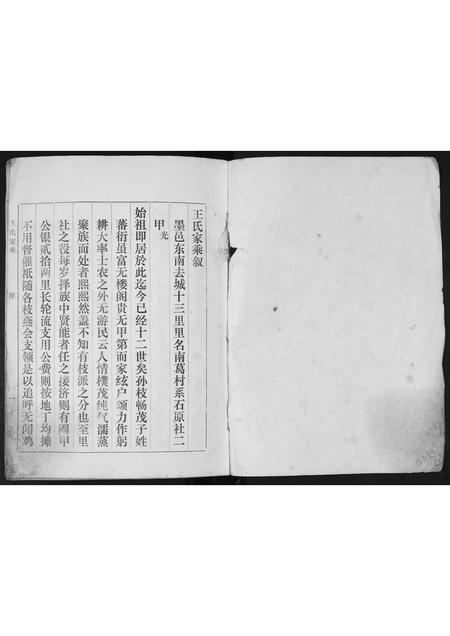 王氏家乘叙
墨邑东南去城十三里里名南葛村系石原社二
甲光
始祖即居於此迄今已经十二世矣孙枝畅茂子姓
蕃衍虽富无楼阁贵无甲第而家纮户颂力作躬
耕大率士农之外无游民云人情樸茂纯气濡蒸
聚族而处者熙熙然盖不知有枝派之分也至里
社之役每岁择族中贤能者任之接济则有阖甲
公银贰拾两里长轮流支用公费则按地丁均摊
不用督催祇随各枝燕会支领是以追呼无闻鸡
王氏家乘
序
一